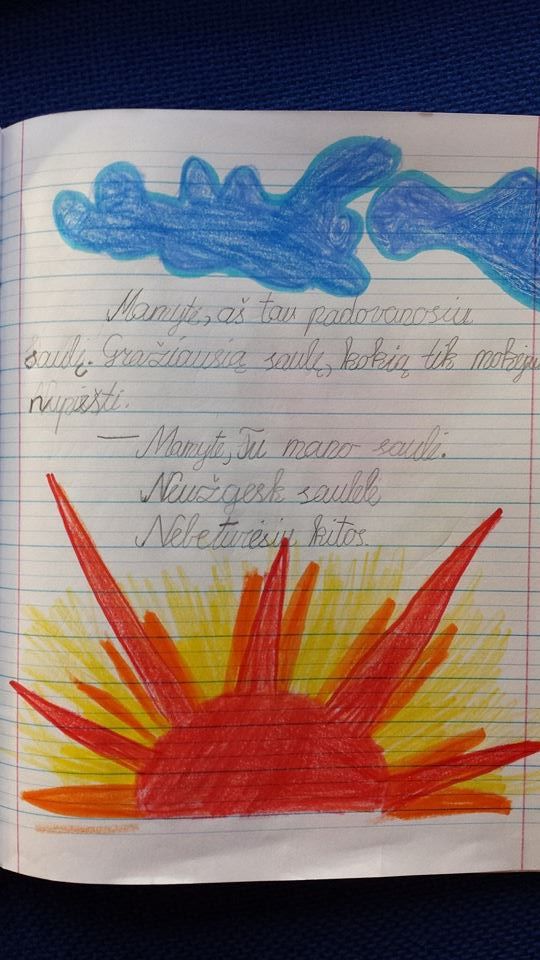 Mamyte, aš tau padovanosiu
saulę. Gražiausią saulę, kokią tik mokėjau
Nupiešti.
— Mamyte, Tu mano saulė.
Neužgesk saulėlė
Nebeturėsiu kitos.